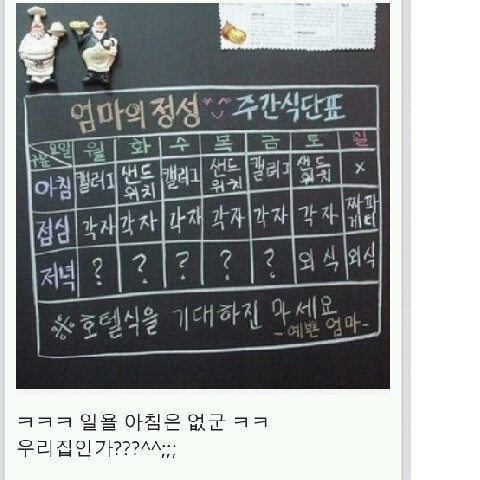 엄마의 정성 주간식단표
구분 요일 월 화 수 목 금 토 일
아침 캘러그 샌드위치 캘러그 샌드위치 캘러그 샌드위치 x
점심 각자 각자 각자 각자 각자 각자 짜파게티
저녁 ? ? ? ? ? 외식 외식
※ 호텔식을 기대하진 마세요
-예쁜 엄마-
ㅋㅋㅋ 일욜 아침은 없군 ㅋㅋ
우리집인가???^^;;;